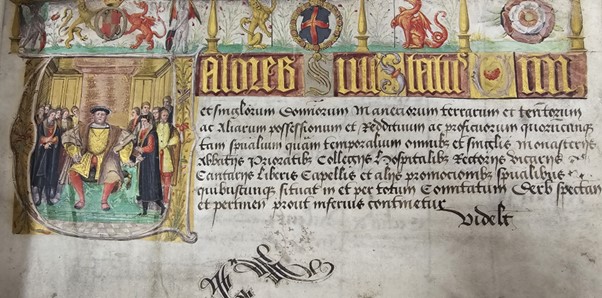 Valores Siue
et singlorum Dominiorum Maneriorum terrarum et tentorum
ac Aliarum possessionum et Reddituum ac proficuorum quorumcunque
tam spualium quam temporalium omnibus et singlis monasterijs
Abbatijs Prioratibz Collegijs Hospitalibz Rectorijs Vicarijs
Cantarijs Liberis Capellis et alijs promocionibz spualibus
quibuscunque situat in et per totum Comitatum Derb spectan
et pertinen prout inferius continetur
Videlt